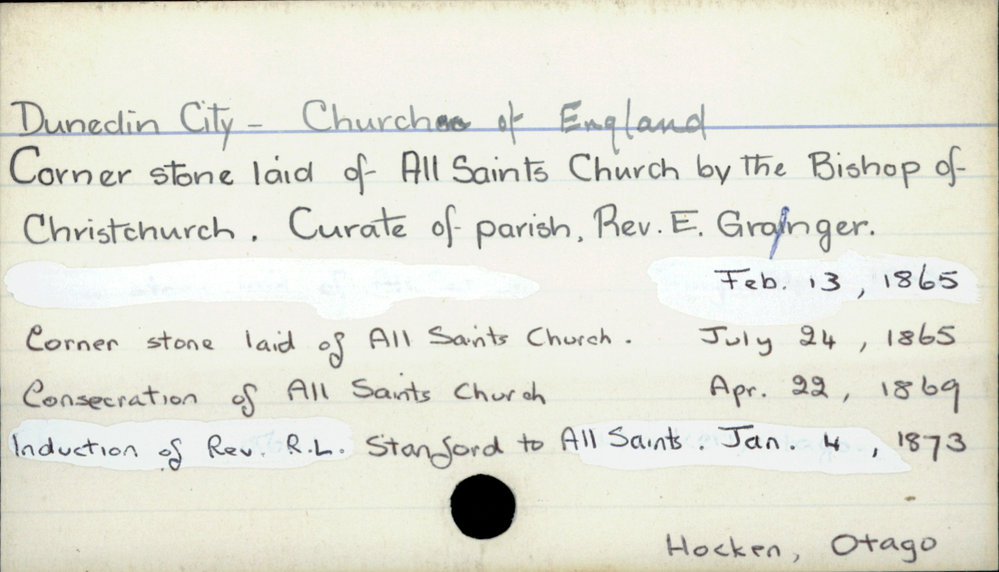 Dunedin City - Church of England
Corner stone laid of All Saints Church by the Bishop of
Christchurch. Curate of parish, Rev. E. Granger.
Feb. 13, 1865
Corner stone laid of All Saints Church. July 24, 1865
Consecration of All Saints Church Apr. 22, 1869
Induction of Rev. R.L. Stanford to All Saints. Jan. 4, 1873
Hocken, Otago